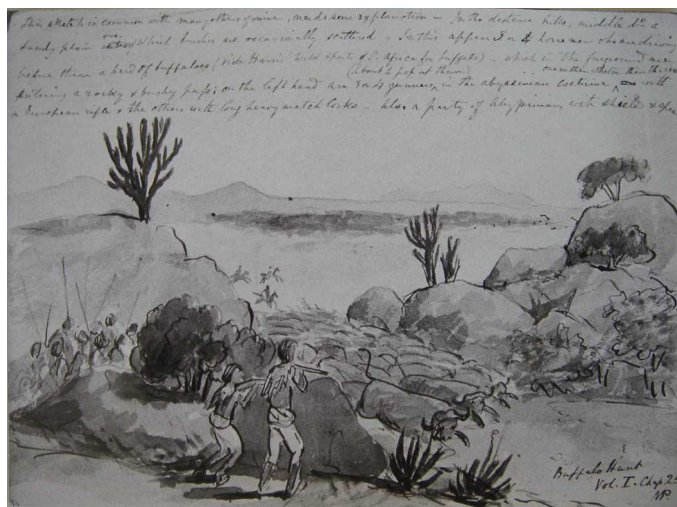 This sketch in common with many others of mine, needs some explanation – In the distance hills, middle do. a
sandy plain over which bushes are occasionally scattered – In this appear 3 or 4 horsemen driving
before them a herd of buffaloes (Vide Harris' Wild Sports of S. Africa for buffalo) – which in the foreground are
(about to pop at them)
entering a rocky & bushy pass; on the left hand are 3 or 4 gunners, in the abyssinian costume, with
a European rifle & the others with long heavy matchlocks – also a party of abyssinians with shields & spears
Buffalo Hunt
Vol. I. Chap. 2
MP.